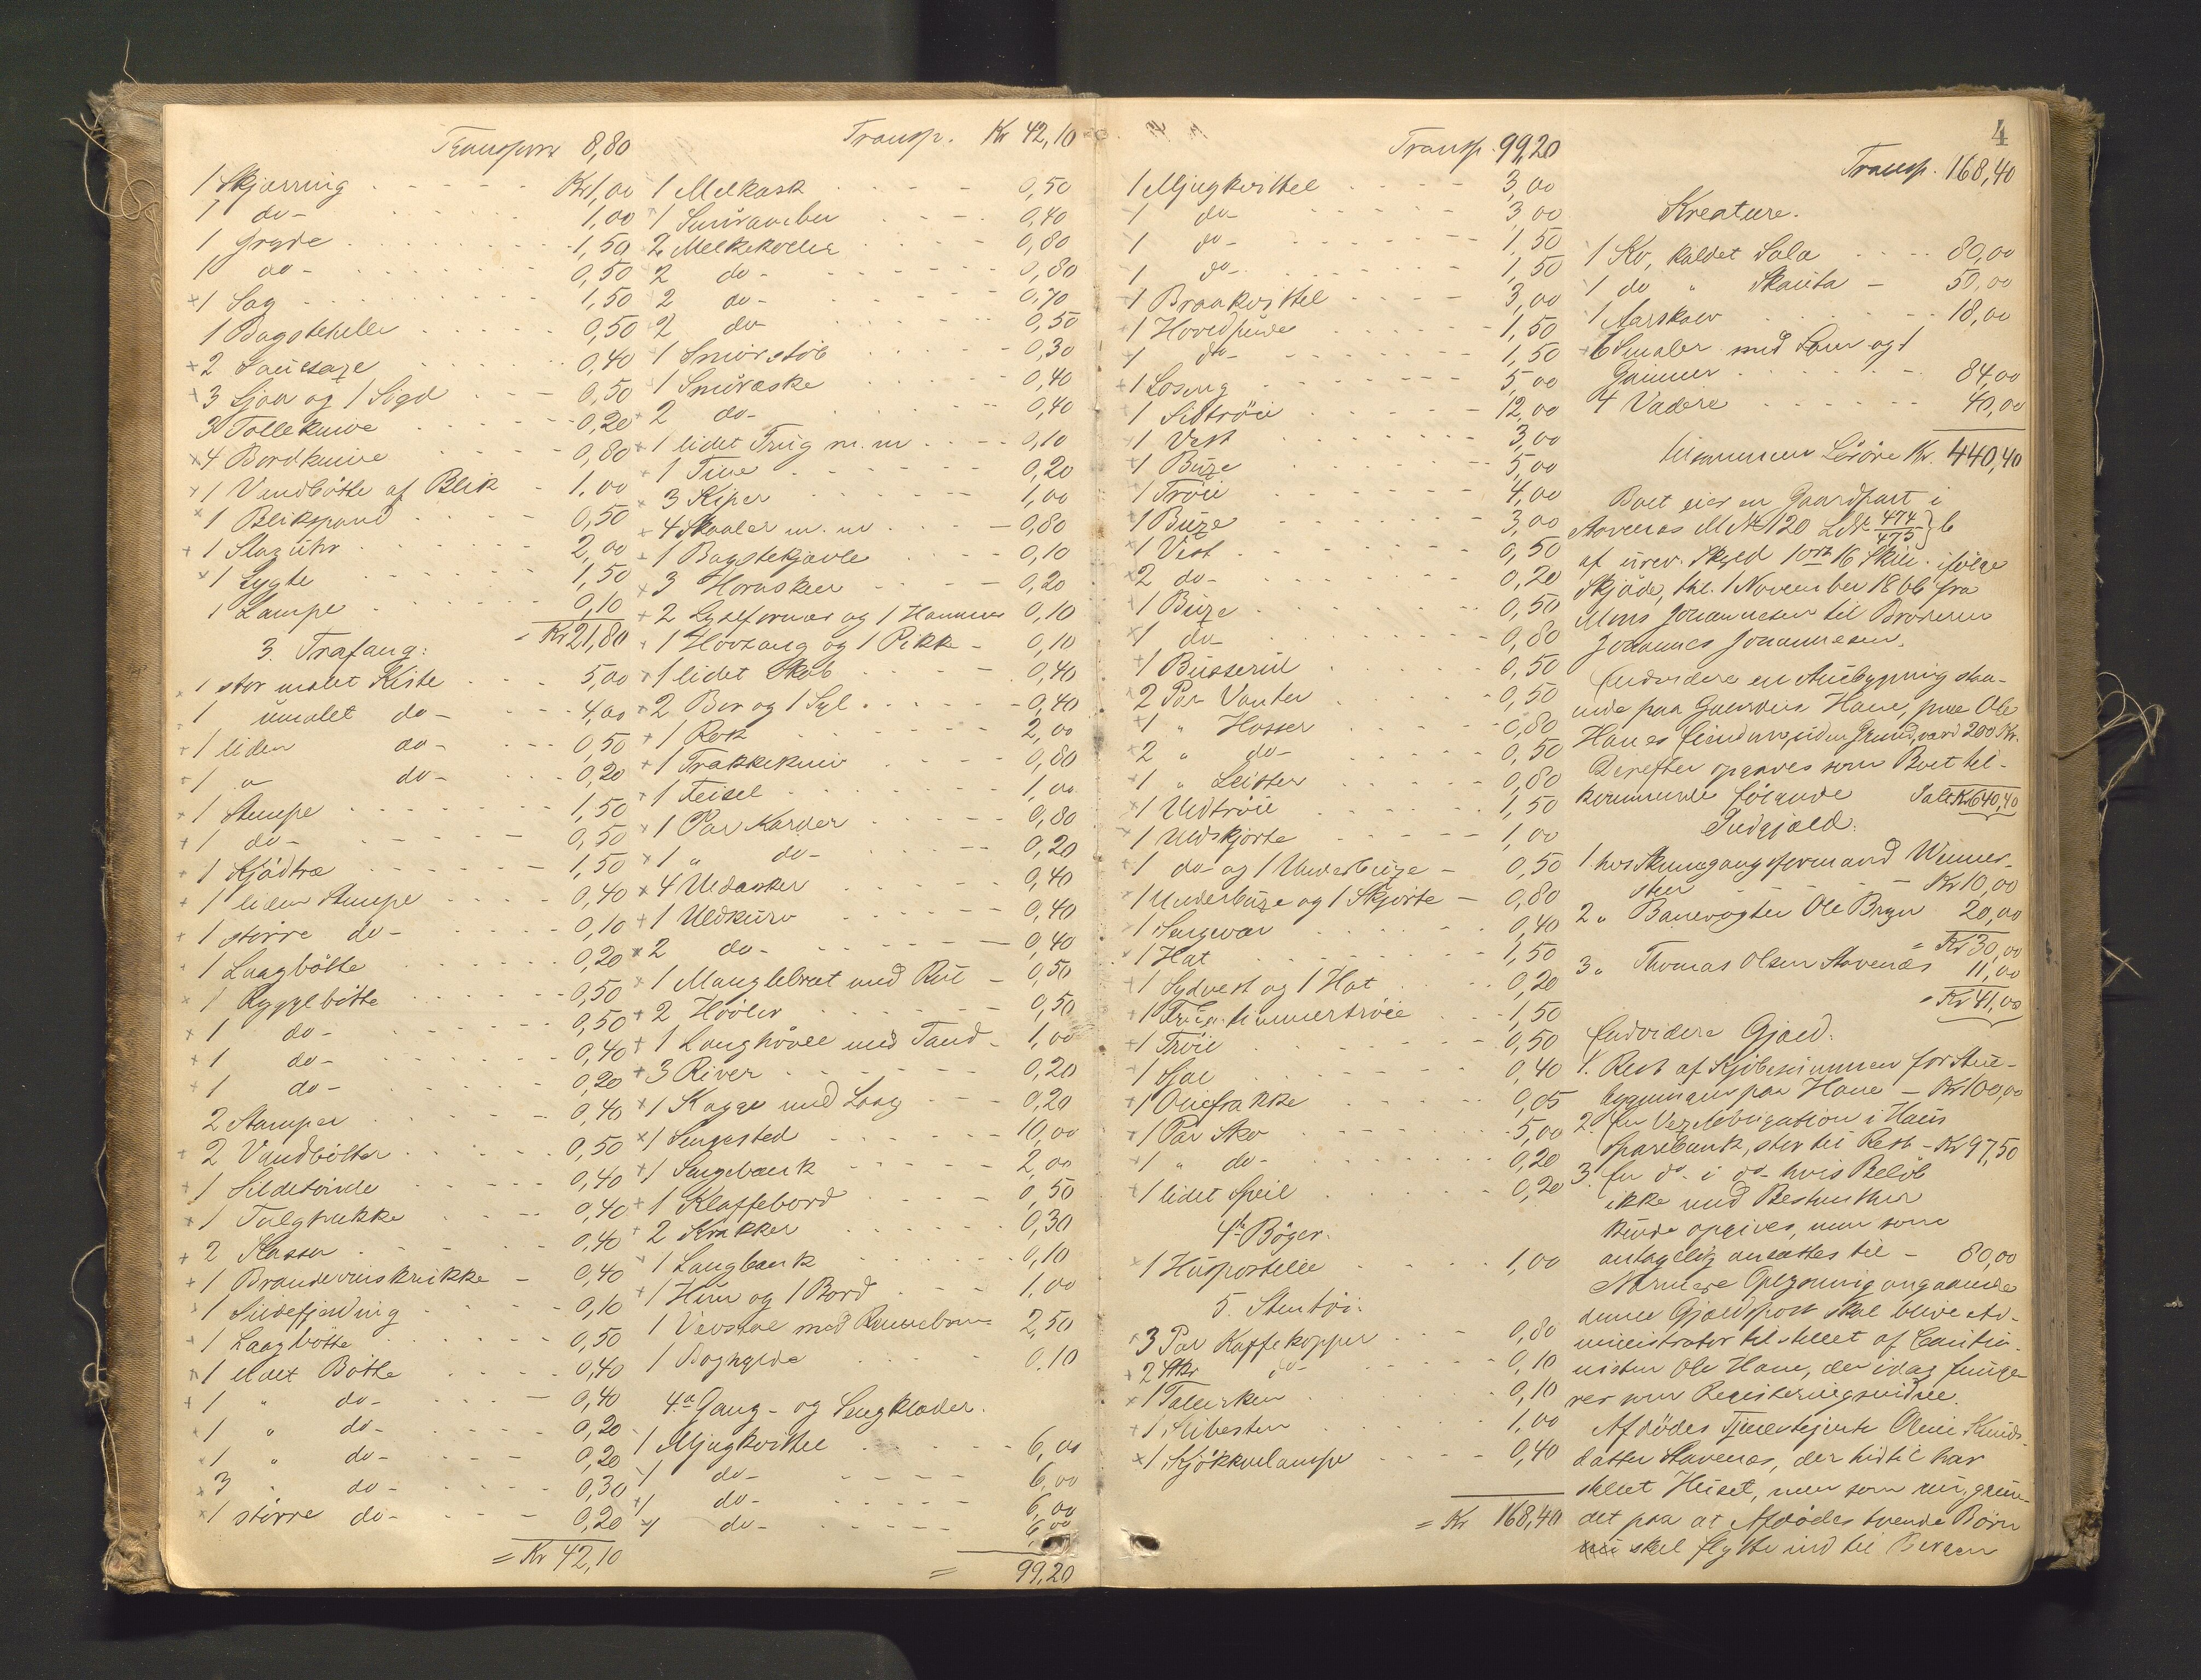 Transport 8,80
1 Skjærring - Kr 1,00
1 do - 1,00
1 Gryde 1,50
1 do - 0,50
+1 Sag 1,50
1 Bagstehelle 0,50
+2 Sauesaxe 0,40
+3 Ljaa og 1 Sigd 0,50
3 Tolleknive 0,20
+4 Bordknive 0,80
+1 Vandbøtte af Blik - 1,00
+1 Blikspand 0,50
+1 Slaguhr 2,00
+1 Lygte 1,50
1 Lampe 0,10
= Kr 21,80
3. Træfang:
1 stor malet Kiste 5,00
1 umalet do - 4,00
+1 liden do - 0,50
+1 " do - 0,20
+1 Stampe 1,50
+1 do - 0,50
+1 Kjødtræ 1,50
+1 liden Stampe 0,40
+1 større do - 0,10
+1 Laagbøtte 0,20
+1 Ryggelbøtte 0,50
+1 do - 0,50
+1 do - 0,40
+1 do - 0,20
2 Stamper 0,40
+2 Vandbøtter 0,50
+1 Sildetønde 0,40
+1 Talgkrukke 0,40
+2 Kasser 0,40
+1 Brændevinskrukke - 0,40
+1 Sildefjerding 0,10
+1 Laagbøtte 0,50
+1 malet Bøtte 0,40
+1 " do - 0,40
+1 " do - 0,20
+1 " do - 0,20
+3 " do - 0,30
+1 større do - 0,20
= Kr 42,10
Transp. Kr 42,10
1 Melkask 0,50
1 Smøramber 0,40
2 Melkekoller 0,80
2 do - 0,80
2 do - 0,70
2 do 0,50
1 Smørstøb 0,30
1 Smøræske 0,40
+2 do - 0,40
+1 lidet Trug m.m 0,10
+1 Tine 0,20
+3 Kiper 1,00
+4 Skaaler m.m 0,80
+1 Bagstekjævle 0,10
+3 Hornskeer 0,20
+2 Lyseformer og 1 Hammer 0,10
+1 Hovtang og 1 Pikke - 0,10
+1 lidet Skab 0,40
+2 Bor og 1 Syl 0,40
+1 Rok 2,00
+1 Trækkekniv 0,80
+1 Teisel 1,00
+1 Par Karder 0,80
+1 " do - 0,20
+4 Uldasker 0,40
+1 Uldkurv 0,40
+2 do - 0,40
+1 Manglebræt med Rul - 0,50
+2 Høvler 0,50
+1 Langhøvel med Tand - 1,00
+3 River 0,20
+1 Kagge med Laag 0,20
+1 Sengested 10,00
+1 Sengebænk 2,00
+1 Klaffebord 0,50
+2 Krakker 0,30
+1 Langbænk 0,10
+1 Hun og 1 Bord 1,00
1 Vævstol med Rennebom 2,50
1 Baghylde 0,10
4.a Gang- og Sengklæder.
1 Mjugkvittel 6,00
+1 do - 6,00
+1 do - 6,00
+1 do - 6,00
= 99,20
Transp. 99,20
1 Mjugkvittel 3,00
1 do 3,00
1 do - 1,50
1 do - 1,50
1 Braakvittel 3,00
1 Hovedpude 1,50
1 do - 1,50
+1 Losing 5,00
1 Sidtrøie 12,00
1 Vest 3,00
+1 Buxe 5,00
1 Trøie 4,00
+1 Buxe 3,00
+1 Vest 0,50
+2 do - 0,20
+1 Buxe 0,50
+1 do - 0,80
+1 Busserul 0,50
+2 Par Vanter 0,50
+1 " Hosser 0,80
+2 " do - 0,50
+1 " Leister 0,80
+1 Uldtrøie 1,50
+1 Uldskjorte 1,00
+1 do - og 1 Underbuxe - 0,50
1 Underbuxe og 1 Skjorte - 0,80
+1 0,40
+1 Hat 1,50
+1 Sydvest og 1 Hat 0,20
+1 1,50
+1 Trøie 0,50
+1 0,40
+1 Oliefrakke 0,05
+1 Par Sko 5,00
+1 " do - 0,20
+1 lidet Speil 0,20
4b Bøger.
+1 Huspostille 1,00
5. Stentøi:
+3 Par Kaffekopper 0,80
+2 Stkr do - 0,10
+1 Tallerken 0,10
+1 1,00
+1 Kjøkkenlampe 0,40
= Kr 168,40
4
Transp. 168,40
Kreature.
1 Ko, kaldet Sala 80,00
1 do " Skauta - 50,00
1 Aarskalv 18,00
+6 Smaler med Lam og 1
Gimmer 84,00
4 Vædere 40,00
tilsammen Løsøre Kr. 440,40
Boet eier en Gaardpart i
Stavenæs M.Nr 120 L.Nr 474/475 } b
af urev. Skyld 10rt 16 Skill. ifølge
Skjøde, thl. 1 November 1866 fra
Mons Johannesen til Broderen
Johannes Johannesen.
Endvidere en Stuebygning staa-
ende paa Gaarden Hane, paa Ole
Hanes Eiendom, uden Grund, værd 200 Kr.
Derefter opgaves som Boet til-
kommende følgende Sale Kr 640,40
Indgjæld:
1. hos Skundgangsformand Winner-
sten - Kr 10,00
2 " Banevogter Ole Bryn 20,00
= Kr 30,00
3 " Thomas Olsen Stavenæs 11,00
= Kr 41,00
Endvidere Gjæld:
1. Rest af Kjøbesummen for Stue-
bygningen paa Hane - Kr 100,00
2. En Vexelobligation i Haus
Sparebank, stor til Rest - Kr 97,50
3. En do - i do - hvis Beløb
ikke med Bestemthed
kunde opgives, men som
antagelig ansattes til - 80,00
Nærmere Oplysning angaaende
denne Gjældspost skal blive Ad-
ministrator tilstillet af Cautio-
nisten Ole Hane, der idag funge-
rer som Registreringsvidne.
Afdødes Tjenestejente Oline Knuds-
datter Stavenæs, der hidtil har
stellet Huset, men som nu, grun-
det paa at Afdødes tvende Børn
skal flytte ind til Bergen